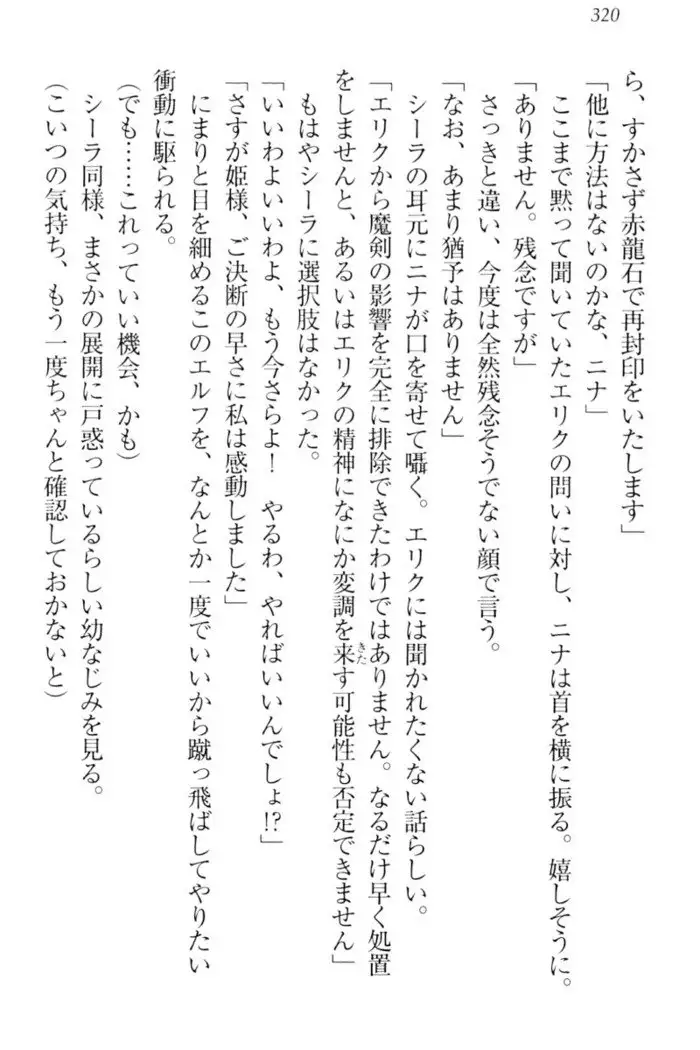 320
ら、すかさず赤龍石で再封印をいたします」
「他に方法はないのかな、ニナ」
ここまで黙って聞いていたエリクの問いに対し、ニナは首を横に振る。嬉しそうに。
「ありません。残念ですが」
さっきと違い、今度は全然残念そうでない顔で言う。
「なお、あまり猶予はありません」
シーラの耳元にニナが口を寄せて囁く。エリクには聞かれたくない話らしい。
「エリクから魔剣の影響を完全に排除できたわけではありません。なるだけ早く処置
をしませんと、あるいはエリクの精神になにか変調を来す可能性も否定できません」
きた
もはやシーラに選択肢はなかった。
「いいわよいいわよ、もう今さらよ! やるわ、やればいいんでしょ!?」
「さすが姫様、ご決断の早さに私は感動しました」
にまりと目を細めるこのエルフを、なんとか一度でいいから蹴っ飛ばしてやりたい
衝動に駆られる。
(でも……これっていい機会、かも)
シーラ同様、まさかの展開に戸惑っているらしい幼なじみを見る。
(こいつの気持ち、もう一度ちゃんと確認しておかないと)